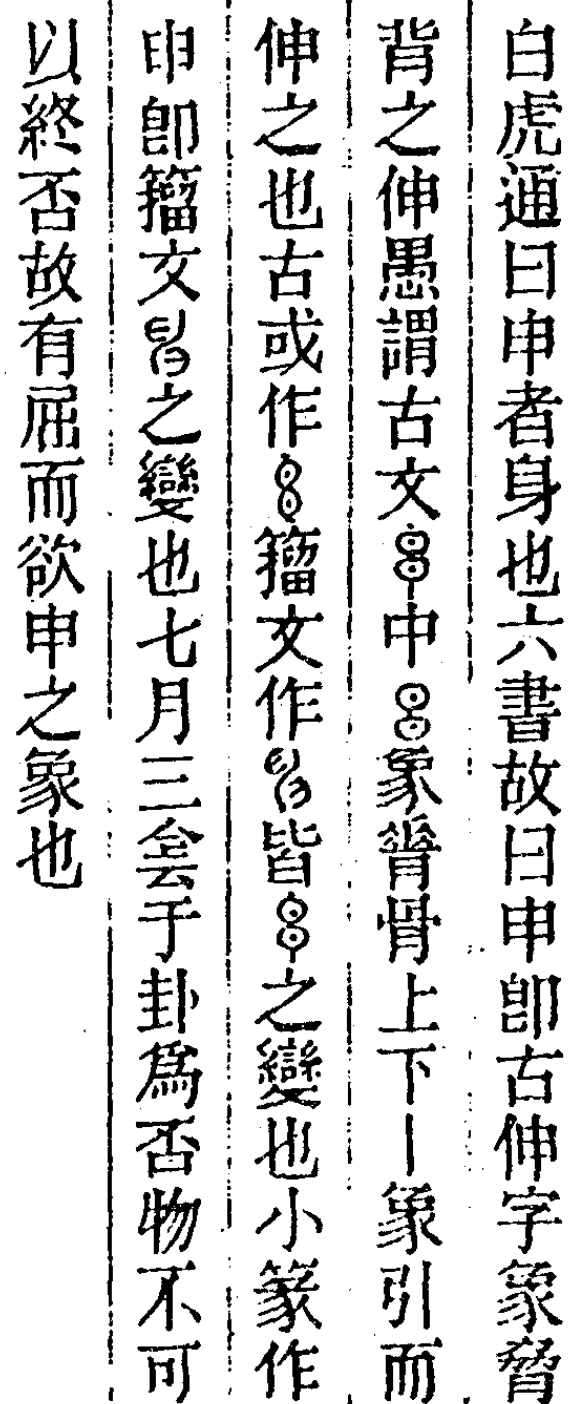 白虎通曰申者身也六書故曰申卽古伸字象脊
背之伸愚謂古文中象脊骨上下丨象引而
伸之也古或作籒文作皆之變也小篆作
申卽籒文之變也七月三侌于卦爲否物不可
以終否故有屈而欲申之象也